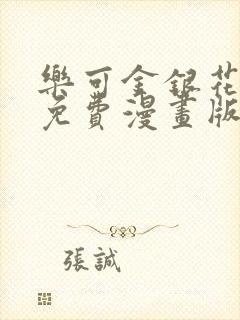 樂可金銀花
免費漫畫版
張誠